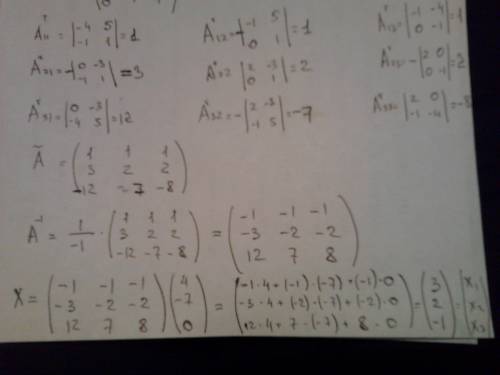 A₁₁ᵀ = |-4 5; -1 1| = 1 A₁₂ᵀ = -|-1 5; 0 1| = 1 A₁₃ᵀ = |-1 -4; 0 -1| = 1
A₂₁ᵀ = -|0 -3; -1 1| = 3 A₂₂ᵀ |2 -3; 0 1| = 2 A₂₃ᵀ = -|2 0; 0 -1| = 2
A₃₁ᵀ = |0 -3; -4 5| = 12 A₃₂ᵀ = -|2 -3; -1 5| = -7 A₃₃ᵀ = |2 0; -1 -4| = -8
Ã = (1 1 1; 3 2 2; -12 -7 -8)
A⁻¹ = 1/-1 · (1 1 1; 3 2 2; -12 -7 -8) = (-1 -1 -1; -3 -2 -2; 12 7 8)
X = (-1 -1 -1; -3 -2 -2; 12 7 8)(4; -7; 0) = (-1·4+(-1)·(-7)+(-1)·0; -3·4+(-2)·(-7)+(-2)·0; 12·4+7·(-7)+8·0) = (3; 2; -1) = (x₁; x₂; x₃)